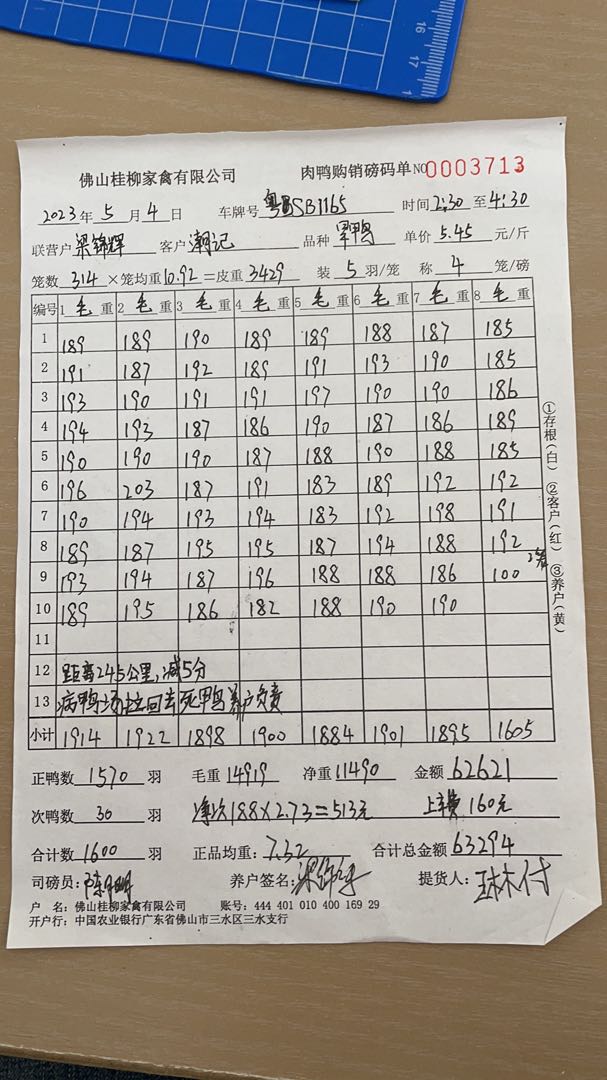 16
17
佛山桂柳家禽有限公司 肉鸭购销磅码单 NO 0003713
2023年 5 月 4 日 车牌号 粤BSB1165 时间 2:30 至 4:30
联营户 梁锦辉 客户 潮记 品种 单价 5.45 元/斤
笼数 314 ×笼均重 10.92 =皮重 3429 装 5 羽/笼 称 4 笼/磅
编号 1 毛 重 2 毛 重 3 毛 重 4 毛 重 5 毛 重 6 毛 重 7 毛 重 8 毛 重
1 189 189 190 189 189 188 187 185
2 191 187 192 189 191 193 190 185
3 193 190 191 191 197 190 190 186
4 194 193 187 186 190 187 186 189
5 190 190 190 187 188 190 188 185
6 196 203 187 191 183 189 192 192
7 190 194 193 194 183 192 198 191
8 189 187 195 195 187 194 188 192
9 193 194 187 196 188 188 186 100 2笼
10 189 195 186 182 188 190 190
11
12 距离245公里,减5分
13 病鸭场拉回去死鸭养户负责
小计 1914 1922 1898 1900 1884 1901 1895 1605
①存根(白) ②客户(红) ③养户(黄)
正鸭数 1570 羽 毛重 14919 净重 11490 金额 62621
次鸭数 30 羽 净次188×2.73=513元 上车费160元
合计数 1600 羽 正品均重: 7.32 合计总金额 63294
司磅员: 养户签名: 梁锦辉 提货人:
户 名: 佛山桂柳家禽有限公司 账号: 444 401 010 400 169 29
开户行: 中国农业银行广东省佛山市三水区三水支行